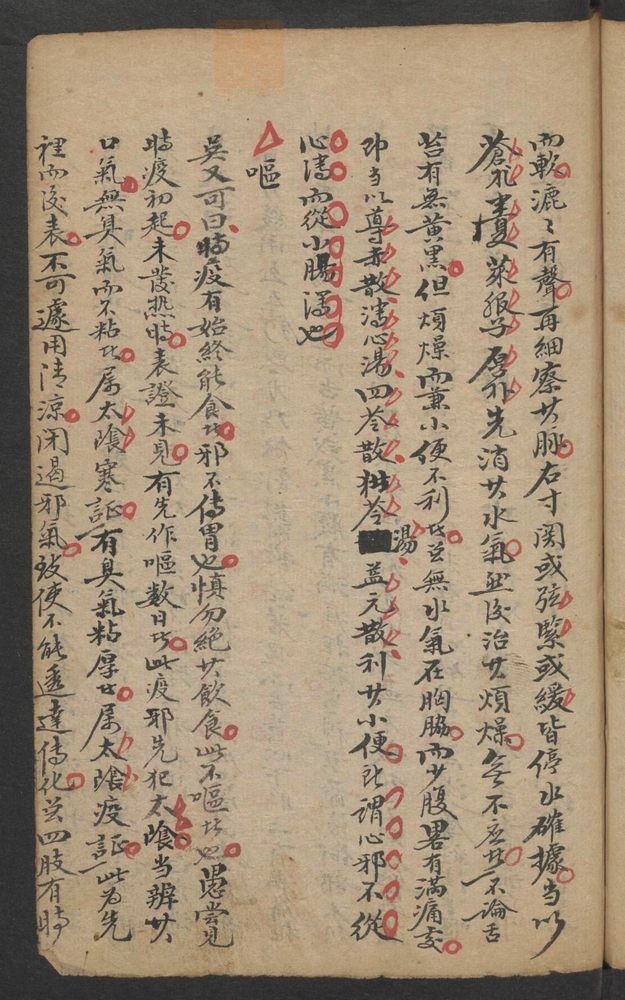 而軟漉々有聲再細察其脉右寸関或弦緊或緩皆停水確據当以
蒼朮萋萊服子厚朴先消其水氣然後治其煩燥無不应其不論舌
苔有無黃黑但煩燥而兼小便不利此豈無水氣在胸脇而少腹畧有滿痛交
即当以導赤散瀉心湯四苓散猪苓湯益元散利其小便此謂心邪不從
心瀉而從小腸瀉也
嘔
吳又可曰時疫有始終能食此邪不傳胃也慎勿絕其飲食此不嘔者也愚嘗見
時疫初起未發热時表證未見有先作嘔數日者此疫邪先犯太陰当辨其
口氣無臭氣而不粘者属太陰寒証有臭氣粘厚者属太陰疫証此为先
裡而後表不可遽用清凉闭遏邪氣致使不能透達傳化若四肢有時